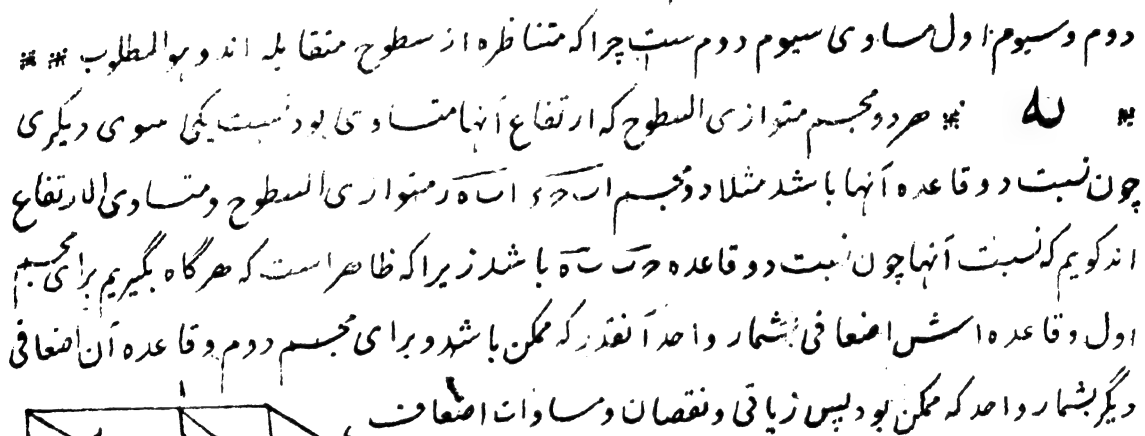 دوم وسیوم اول مساوی سیوم دوم ست چراکه متناظره از سطوح متقابله اند و هوالمطلوب ⁂ ⁂
⁂ له ⁂ هردو مجسم متوازی السطوح که ارتفاع آنها متساوی بود نسبت یکی سوی دیگری
چون نسبت دو قاعده آنها باشد مثلا دو مجسم متوازی السطوح ومتساوی الارتفاع
اند کویم که نسبت آنها چون نسبت دو قاعده باشد زیراکه ظاهراست که هرگاه بگیریم برای مجسم
اول وقاعده اش اضعافی بشمار واحد آنقدر که ممکن باشد وبرای مجسم دوم وقاعده آن اضعافی
دیگر بشمار واحد که ممکن بود پس زیاتی ونقصان ومساوات اضعاف